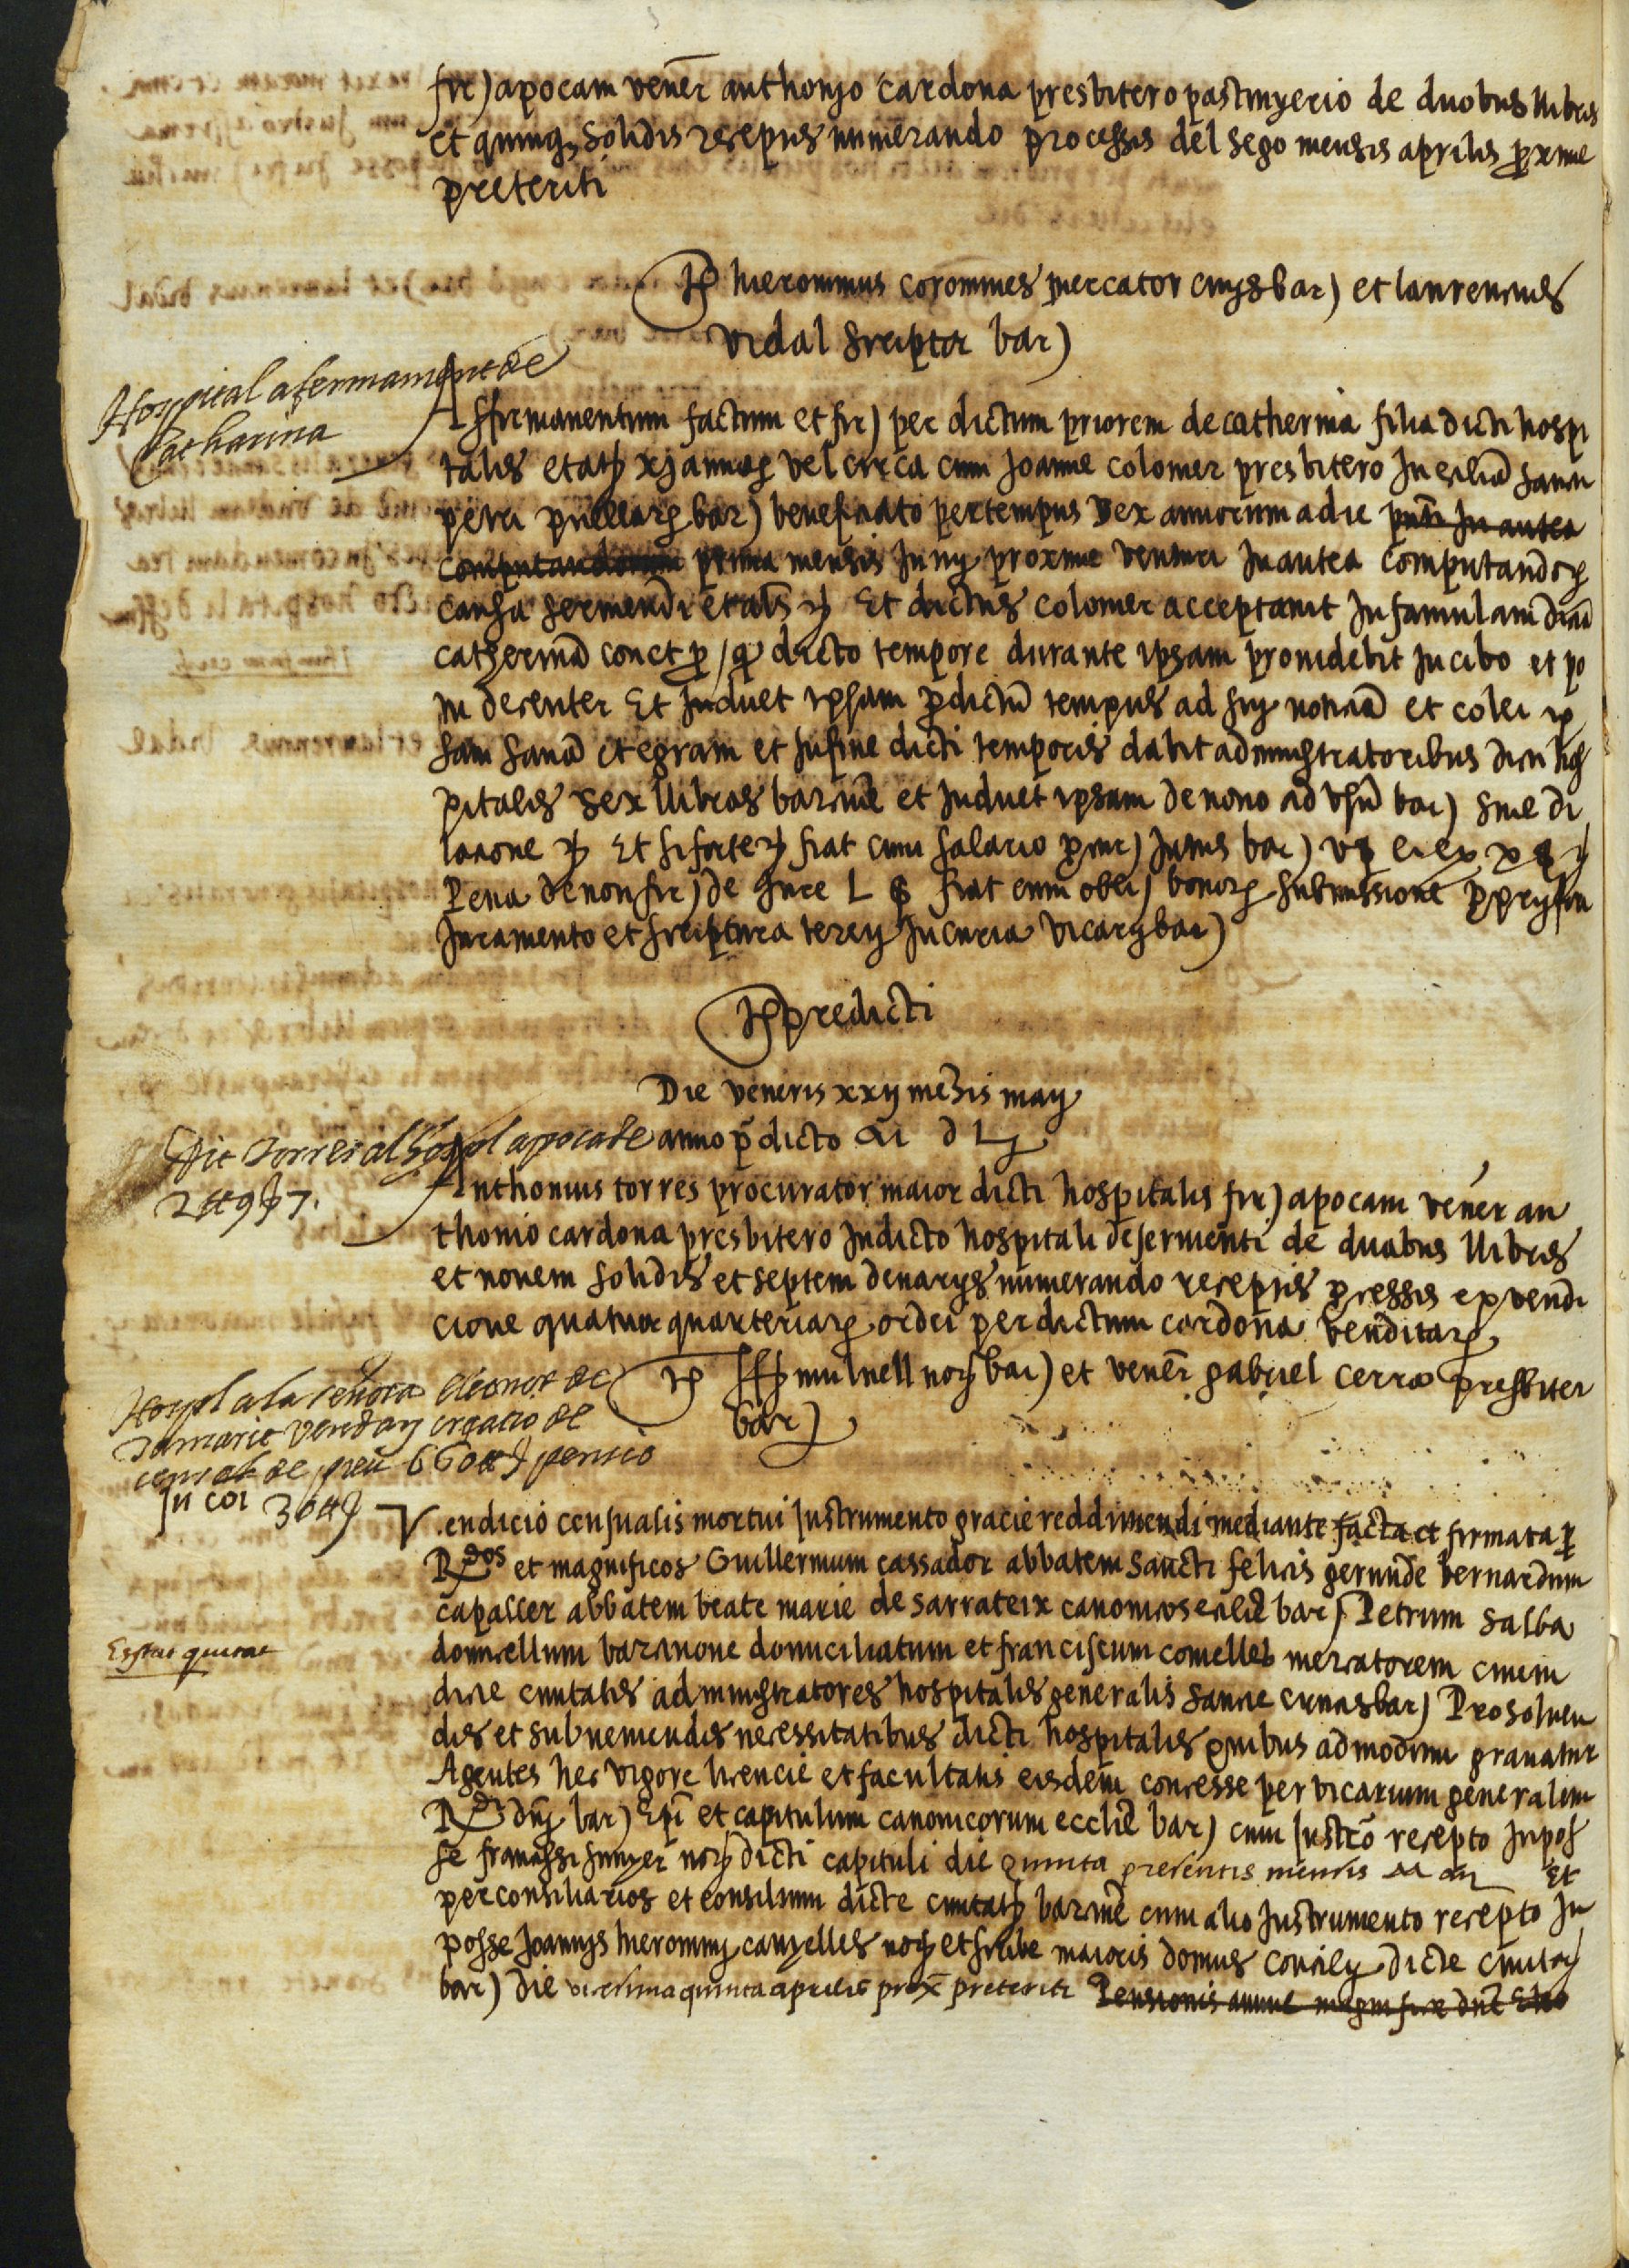 fir) apocam vener anthonjo cardona presbitero pastinyerio de duobus llibris
et quinq, solidis receptis numerando processis del sego mensis aprilis proxime
preteriti
Ts hieronimus coromines mercator civis bar) et laurencius
vidal scriptor bar)
Hospital afermament de
Catharina
Affirmamentum factum et fir) per dictum priorem de catherina filia dicti hospi
talis etatis xj annor vel circa cum Joanne colomer presbitero In eclia sancti
petri puellar bar) beneficiato per tempus sex annorum a die In antea
computandorum prima mensis Juny proxime venturi In antea computandor
causa serviendi Et dictus colomer acceptavit In famulam dictã
catherinã dicto tempore durante ipsam providebit In cibo et po
tu decenter Et Induet ipsam dictũ tempus ad et colei ip
sam sanã et egram et In fine dicti temporis dabit administratoribus dicti hos
pitalis sex llibras barcinẽ et Induet ipsam de novo ad usũ bar) sine di
lacione Et si forte fiat cum salario procur) Intus bar)
Pena de non fir) de Jure L fiat cum obli) bonor submissione
Juramento et scriptura tercy In curia vicary bar)
Ts predicti
Die veneris xxij mensis maij
anno predicto M D Lj
Ant Torres al Hospl apoca de
2 ℔ 9 s 7.
Anthonius torres procurator maior dicti hospitalis fir) apocam vener an
thonio cardona presbitero In dicto hospitali deservienti de duabus llibris
et novem solidis et septem denarys numerando receptis processis ex vendi
cione quatuor quarteriar ordei per dictum cardona venditar
Ts mulnell not bar) et vener gabriel cerra presbiter
bar)
Hospl a la señora Eleonor de
Tamarit venda y creacio de
censal de preu 660 ℔ pensio
In cor 30 ℔
Vendicio censualis mortui Instrumento gracie reddimendi mediante facta et firmata per
Rdos et magnificos Guillermum cassador abbatem sancti felicis gerunde bernardum
capaller abbatem beate marie de sarrateix canonicos eclie bar) Petrum salba
domicellum barcinone domiciliatum et franciscum comelles mercatorem civem
Estat quitat
dicte civitatis administratores hospitalis generalis sancte crucis bar) Pro solven
dis et subveniendis necessitatibus dicti hospitalis quibus admodum gravatur
Agentes hec vigore licencie et facultatis eisdem concesse per vicarium generalem
Rdi dnj bar) Epi et capitulum canonicorum ecclie bar) cum Instro recepto In pos
se francissi sunyer not dicti capituli die quinta presentis mensis maij Et
per consiliarios et consilium dicte civitatis barcinẽ cum alio Instrumento recepto In
posse Joannis hieronimj canyelles not et scribe maioris domus concily dicte civitat
bar) die vicesima quinta aprilis prox preteriti Pensionis annue